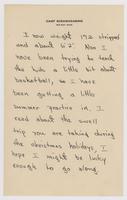 CAMP KOOSHKOOSHOO
I now weight 192 stripped
and about 6'2". Now I
have been trying to teach
the kids a little bit about
basketball, so I have
been getting a little
summer practice in. I
read about the swell
trip you are taking during
the christmas holidays, I
hope I might be lucky
enough to go along